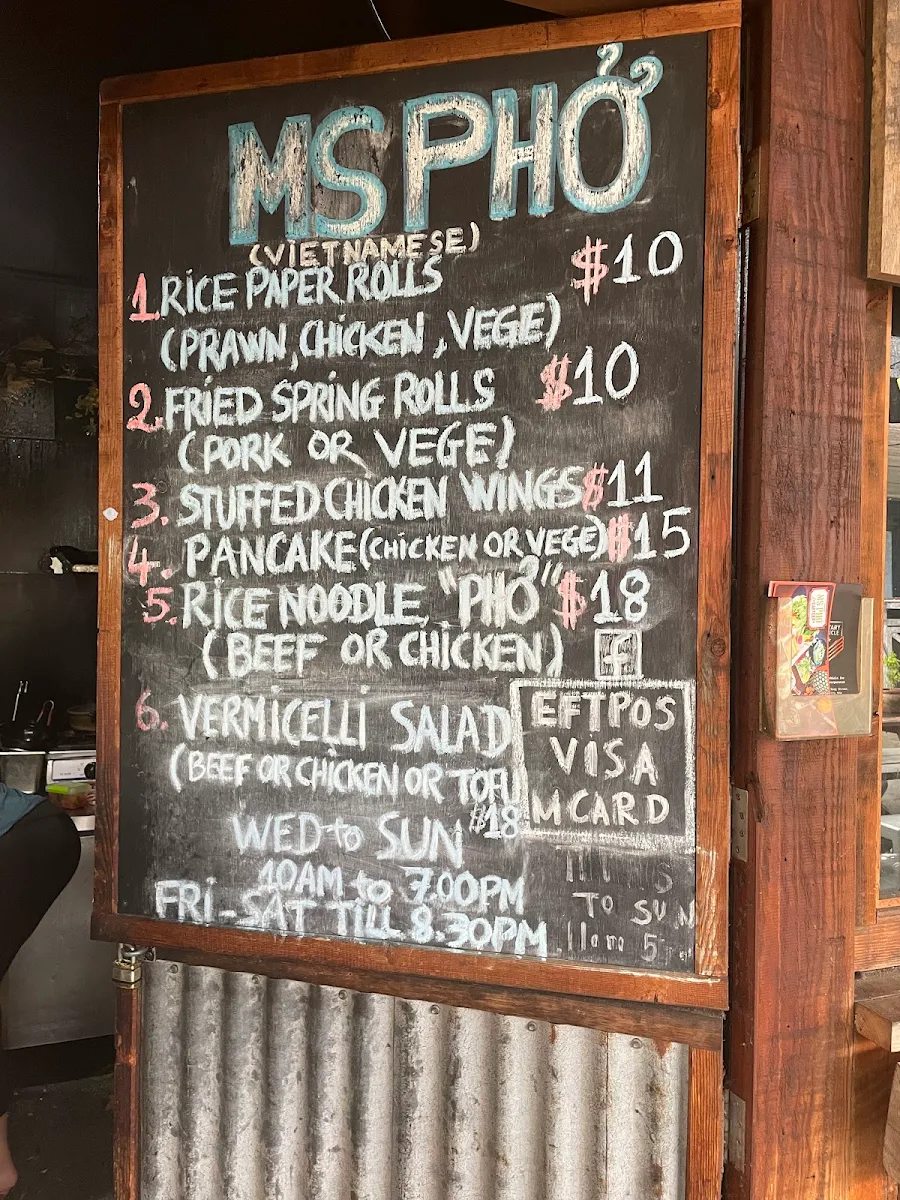 MS PHỞ
(VIETNAMESE)
1. RICE PAPER ROLLS $10
(PRAWN, CHICKEN, VEGE)
2. FRIED SPRING ROLLS $10
(PORK OR VEGE)
3. STUFFED CHICKEN WINGS $11
4. PANCAKE (CHICKEN OR VEGE) $15
5. RICE NOODLE "PHỞ" $18
(BEEF OR CHICKEN)
f
6. VERMICELLI SALAD
(BEEF OR CHICKEN OR TOFU
$18
EFTPOS
VISA
MCARD
WED to SUN
10AM to 7.00PM
FRI - SAT TILL 8.30PM
TO SUN